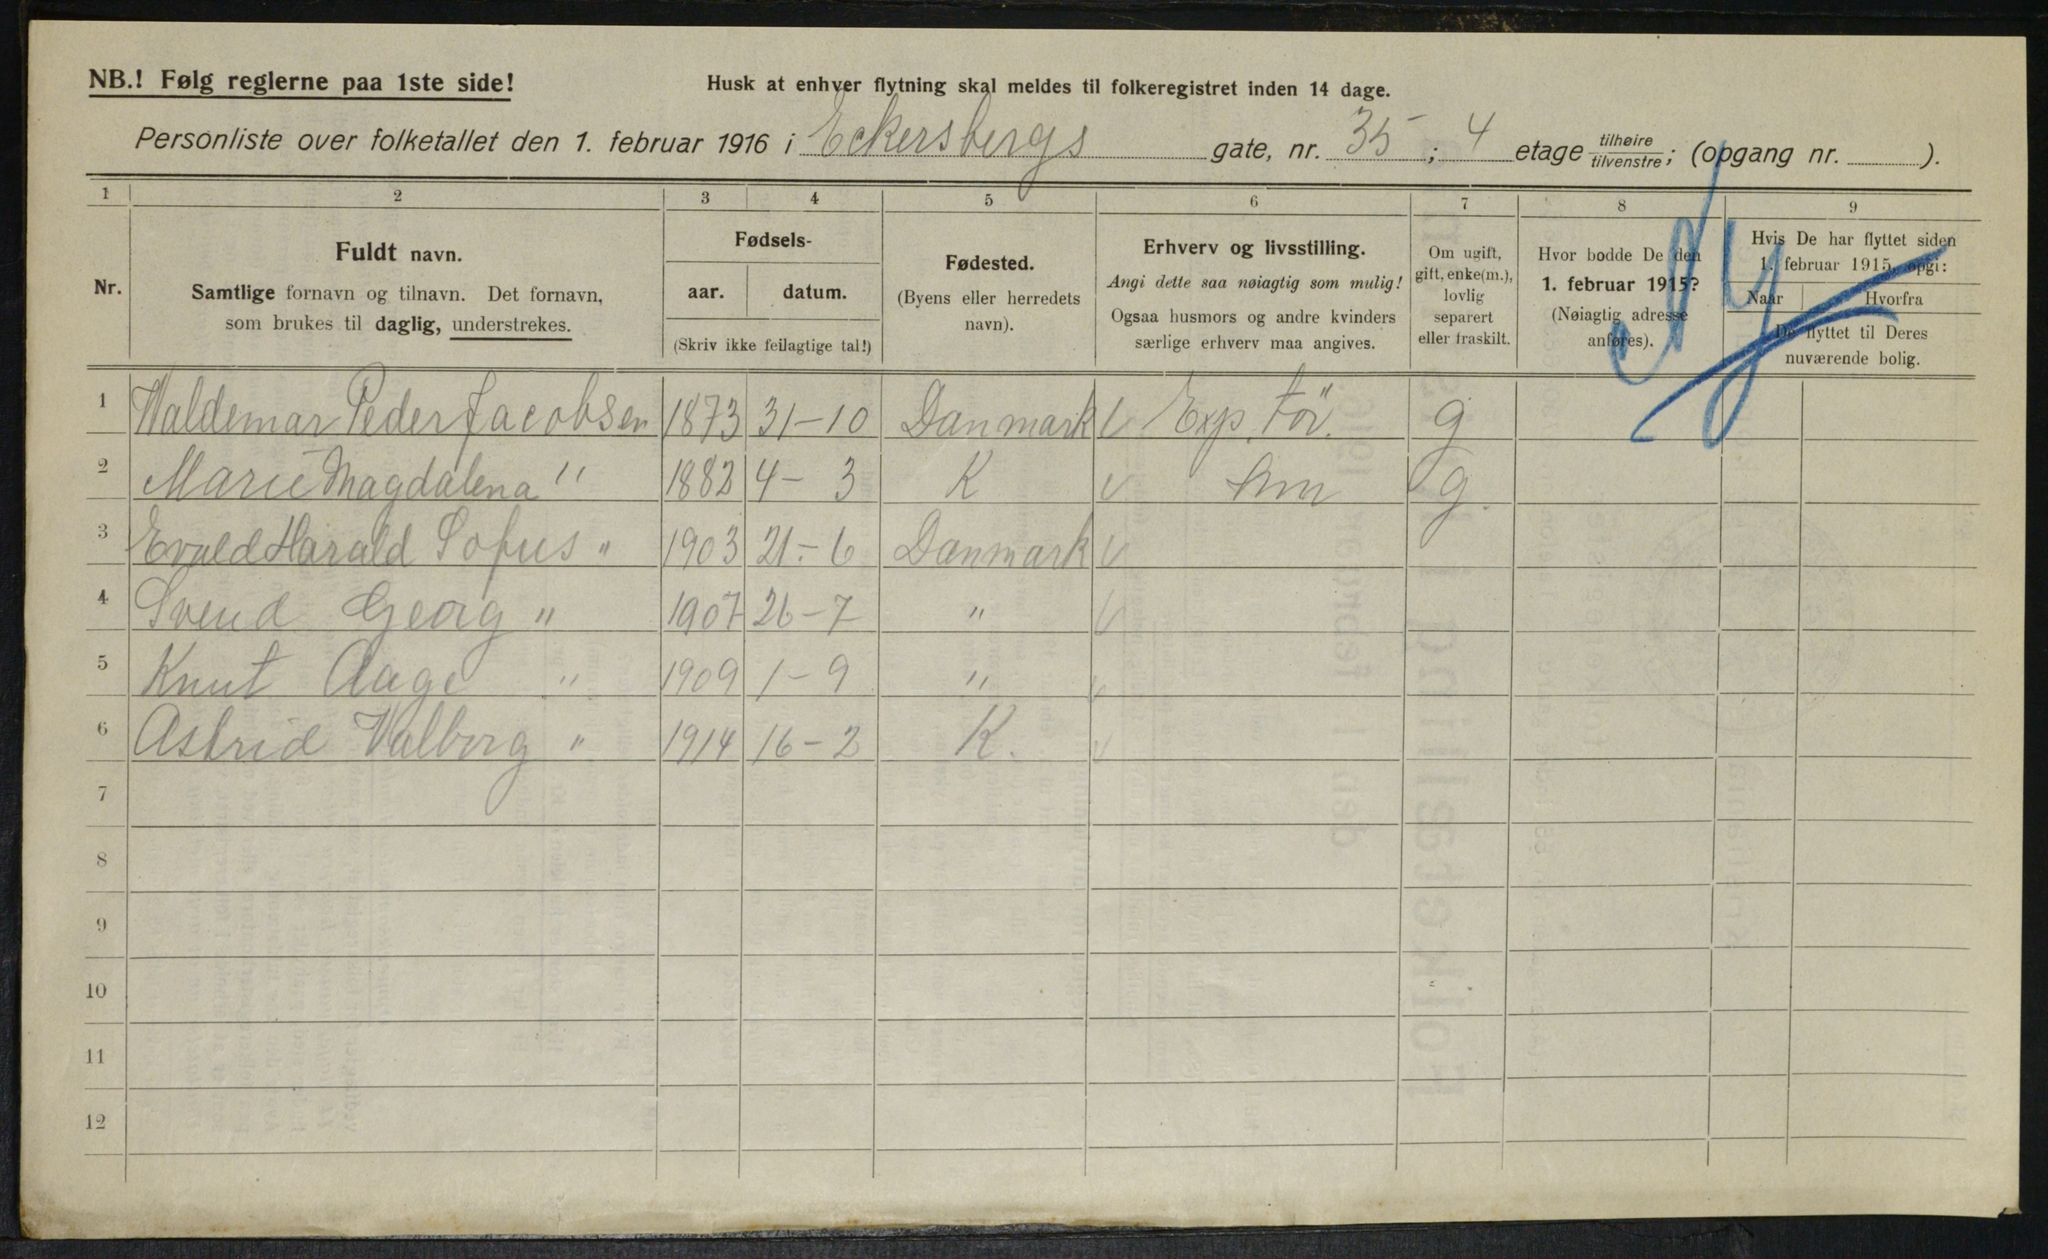 NB.! Følg reglerne paa 1ste side!
Husk at enhver flytning skal meldes til folkeregistret inden 14 dage.
Personliste over folketallet den 1. februar 1916 i Eckersbergs gate, nr. 35; 4 etage tilhøire/tilvenstre; (opgang nr. ).
1 2 3 4 5 6 7 8 9
Nr.
Fuldt navn.
Samtlige fornavn og tilnavn. Det fornavn,
som brukes til daglig, understrekes.
Fødsels-
aar. datum.
(Skriv ikke feilagtige tal!)
Fødested.
(Byens eller herredets
navn).
Erhverv og livsstilling.
Angi dette saa nøiagtig som mulig!
Ogsaa husmors og andre kvinders
særlige erhverv maa angives.
Om ugift,
gift, enke(m.),
lovlig
separert
eller fraskilt.
Hvor bodde De den
1. februar 1915?
(Nøiagtig adresse
anføres).
Hvis De har flyttet siden
1. februar 1915, opgi:
Naar Hvorfra
De flyttet til Deres
nuværende bolig.
Ny
1 Waldemar Peder Jacobsen 1873 31-10 Danmark Exp. før. g
2 Marie Magdalena " 1882 4-3 K hm g.
3 Evald Harald Sofus " 1903 21-6 Danmark
4 Svend Georg " 1907 26-7 "
5 Knut Aage " 1909 1-9 "
6 Astrid Valborg " 1914 16-2 K.
7
8
9
10
11
12